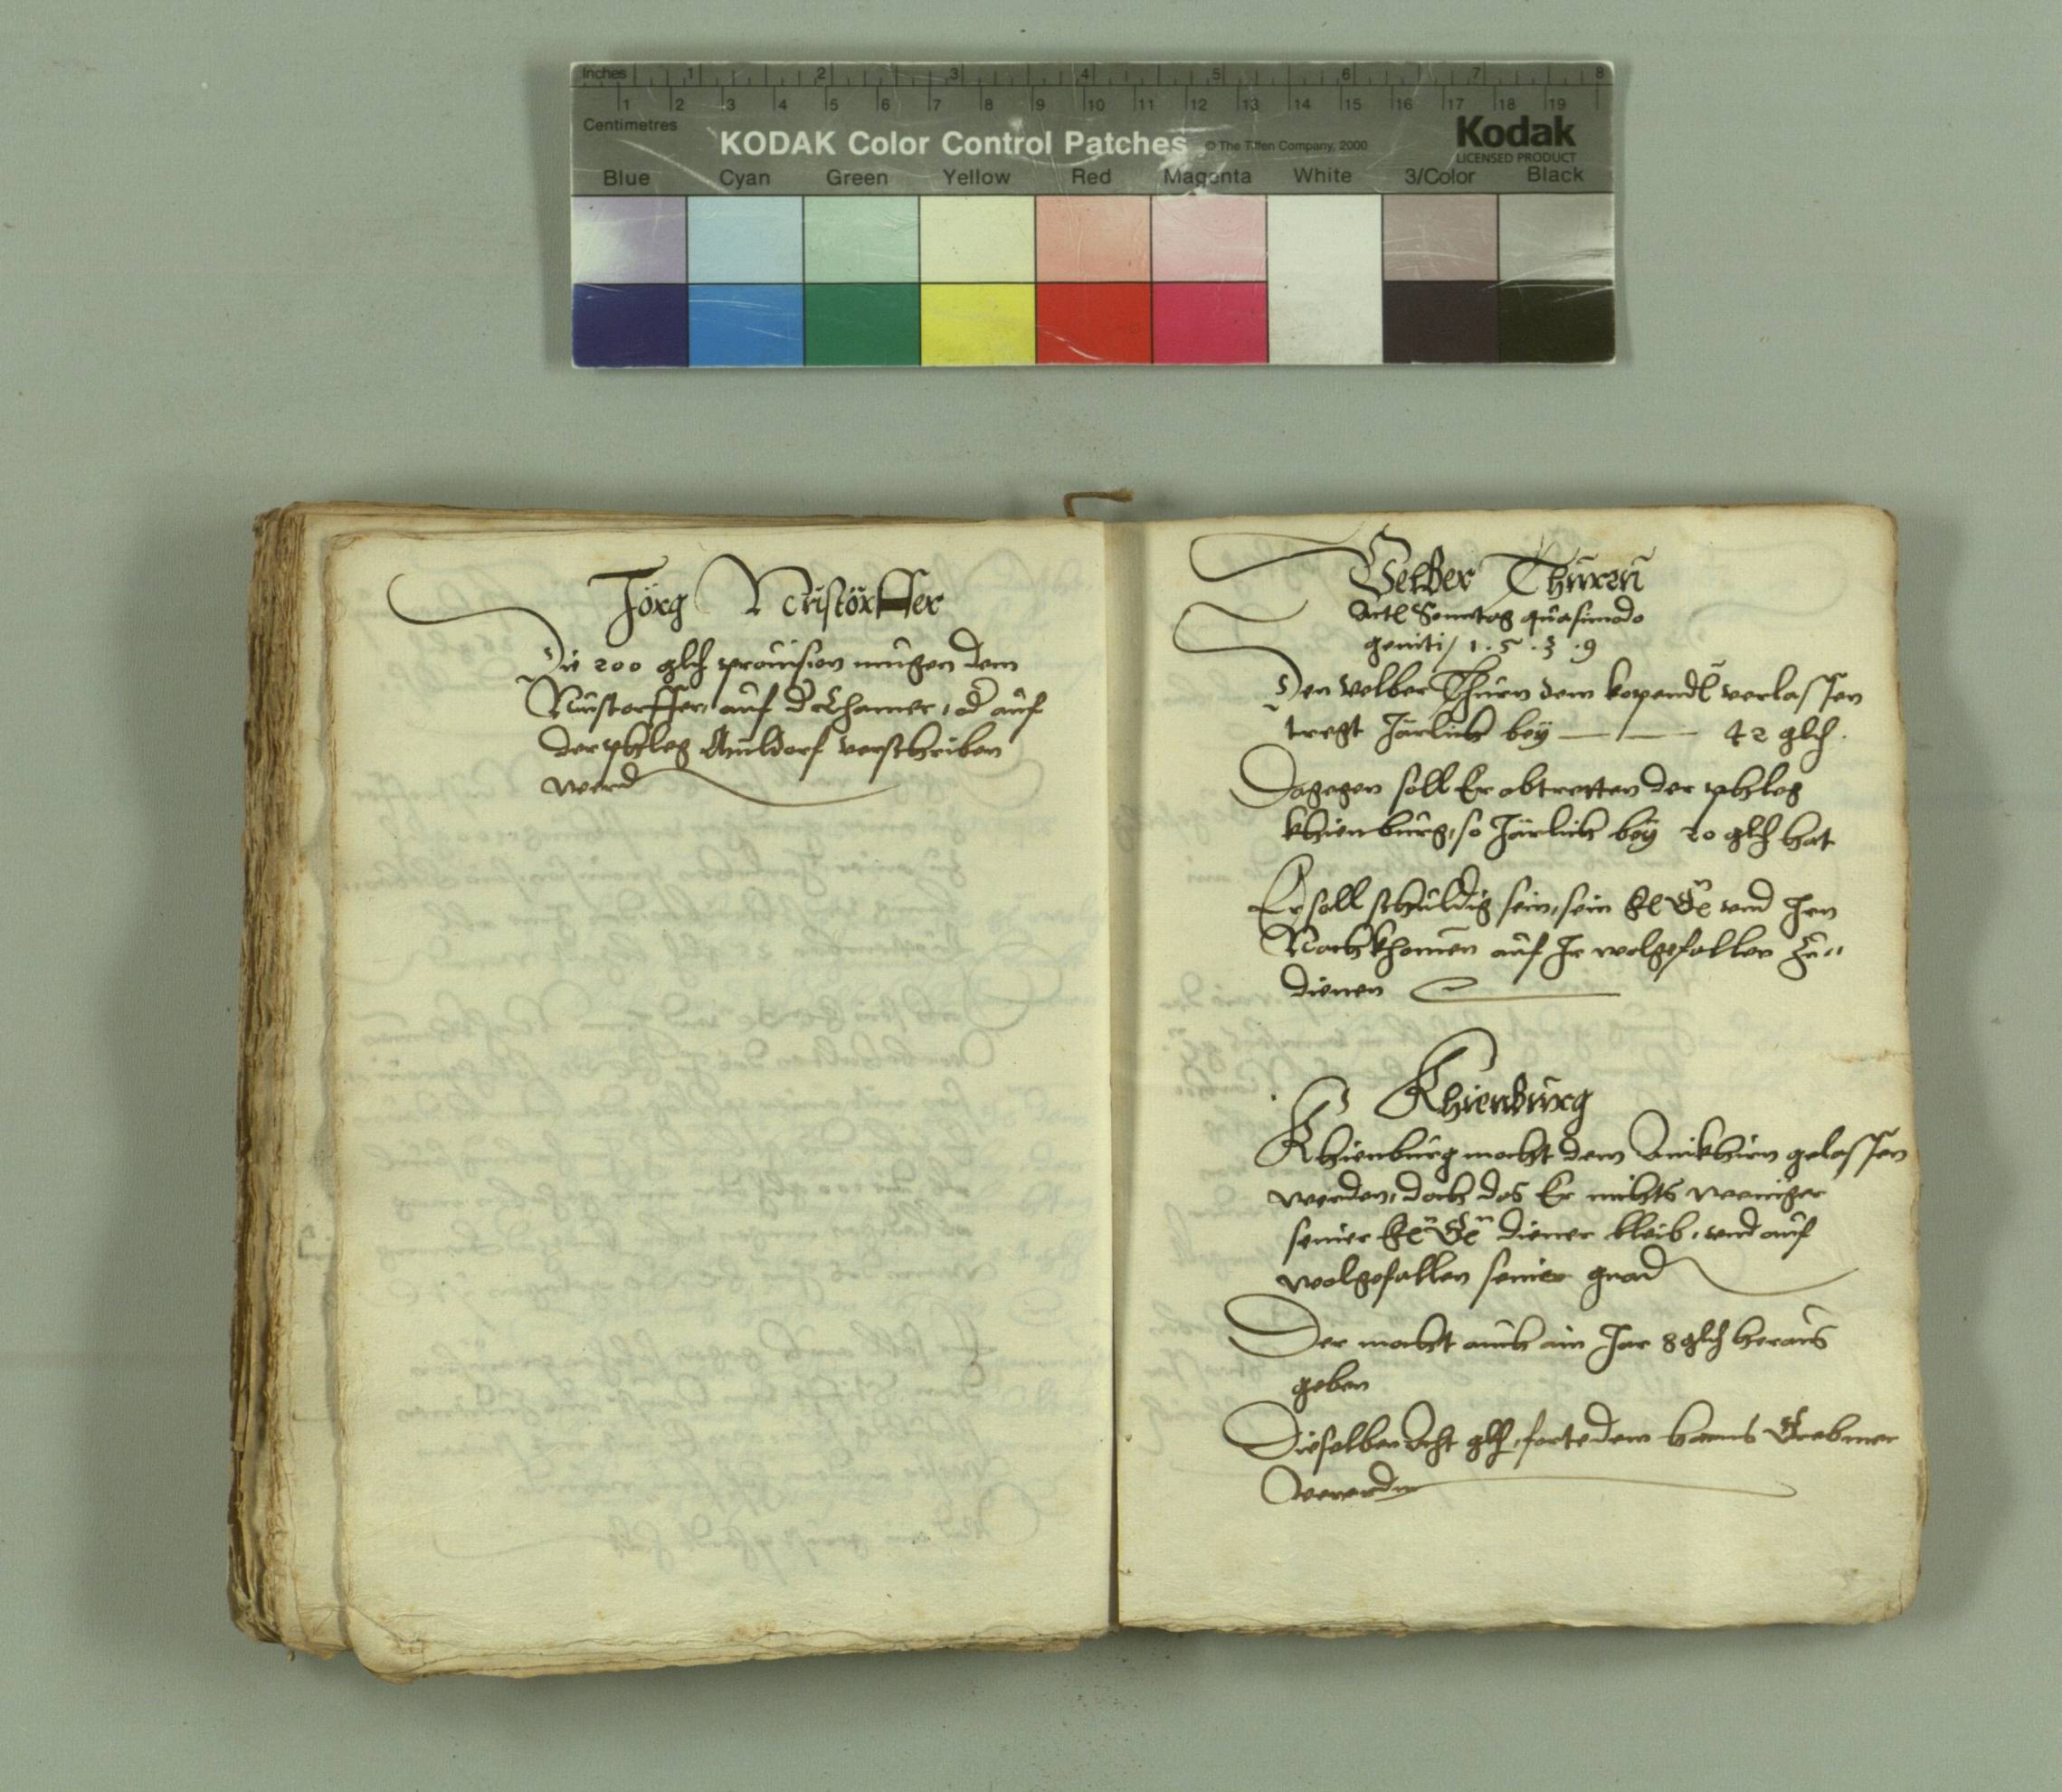 Inches 1 2 3 4 5 6 7 8
1 2 3 4 5 6 7 8 9 10 11 12 13 14 15 16 17 18 19
Centimetres
KODAK Color Control Patches © The Tiffen Company, 2000 Kodak
LICENSED PRODUCT
Blue Cyan Green Yellow Red Magenta White 3/Color Black
Jörg Nustörffer
Die 200 glch prouision mugen dem
Nustorffer, auf d Chamer, od auf
der phleg Auldorf verschriben
werd
Velber Thurn
Sonntag quasimodo
geniti / 1.5.3.9
Den Velber Thurn dem verlassen
tregt Järlich bey 42 glch.
Dagegen soll Er abtretten der phleg
khienburg, so Järlich bey 20 glch hat
Er soll schuldig sein, sein und Irn
Nachkhomen auf Ir wolgefallen zu
dienen
Khienburg
Khienburg mocht dem gelassen
werden, doch das Er nichts weniger
seiner diener bleib, und auf
wolgefallen seiner gnad
Der mocht auch ain Jar 8 glch heraus
geben
Dieselben Acht glch, dem hanns